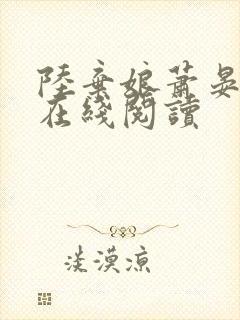 陸棄娘蕭晏
在綫閱讀
淡漠涼